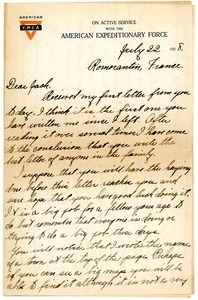 AMERICAN
Y.M.C.A.
ON ACTIVE SERVICE
WITH THE
AMERICAN EXPEDITIONARY FORCE
July 22 1918.
Romorantin, France.
Dear Jack.
Received my first letter from you
today. I think it is the first one you
have written me since I left. After
reading it over several times I have come
to the conclusion that you write the
best letter of anyone in the family.
I suppose that you will have the haying
done before this letter reaches you and
sure hope that you have good luck doing it.
It is a big job for a fellow your age to
do but remember that everyone is doing or
trying to do a big job these days.
You will notice that I wrote the name
of a town at the top of the page. Perhaps
if you can see a big map you will be
able to find it although it is not a very